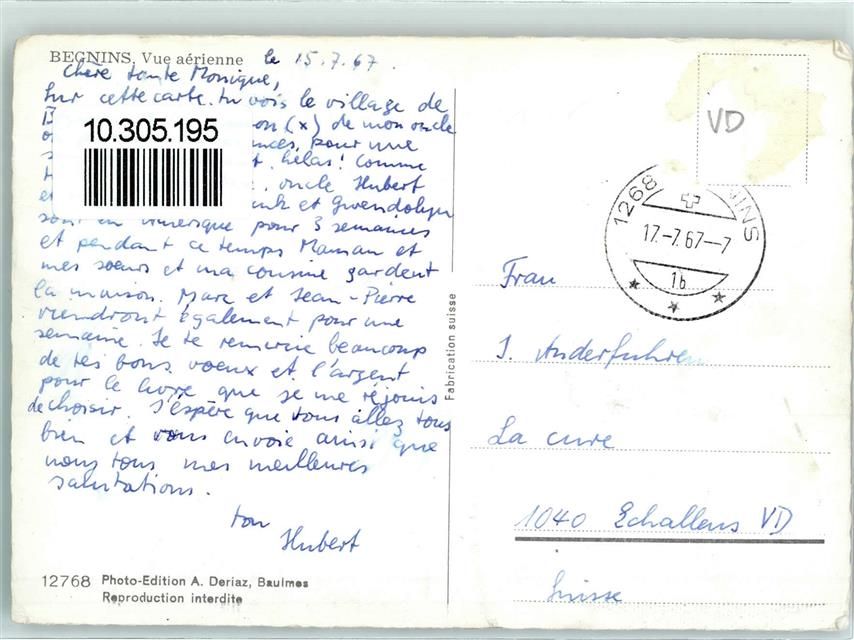 BEGNINS, Vue aérienne
le 15.7.67.
Chère tante Monique,
Sur cette carte tu vois le village de
on (x) de mon oncle
pour une
hélas! Comme
oncle Hubert
et Gwendolyn
sont en Amérique pour 3 semaines
et pendant ce temps Maman et
mes soeurs et ma cousine gardent
la maison. Marc et Jean-Pierre
viendront également pour une
semaine. Je te remercie beaucoup
de tes bons voeux et l'argent
pour le livre que je me réjouis
de choisir. J'espère que vous allez tous
bien et vous envoie ainsi que
nous tous mes meilleures
salutations.
ton
Hubert
10.305.195
12768 Photo-Edition A. Deriaz, Baulmes
Reproduction interdite
Fabrication suisse
VD
1268 BEGNINS
17.-7.67--7
1b
Frau
J. Anderfuhren
La cure
1040 Echallens VD
Suisse